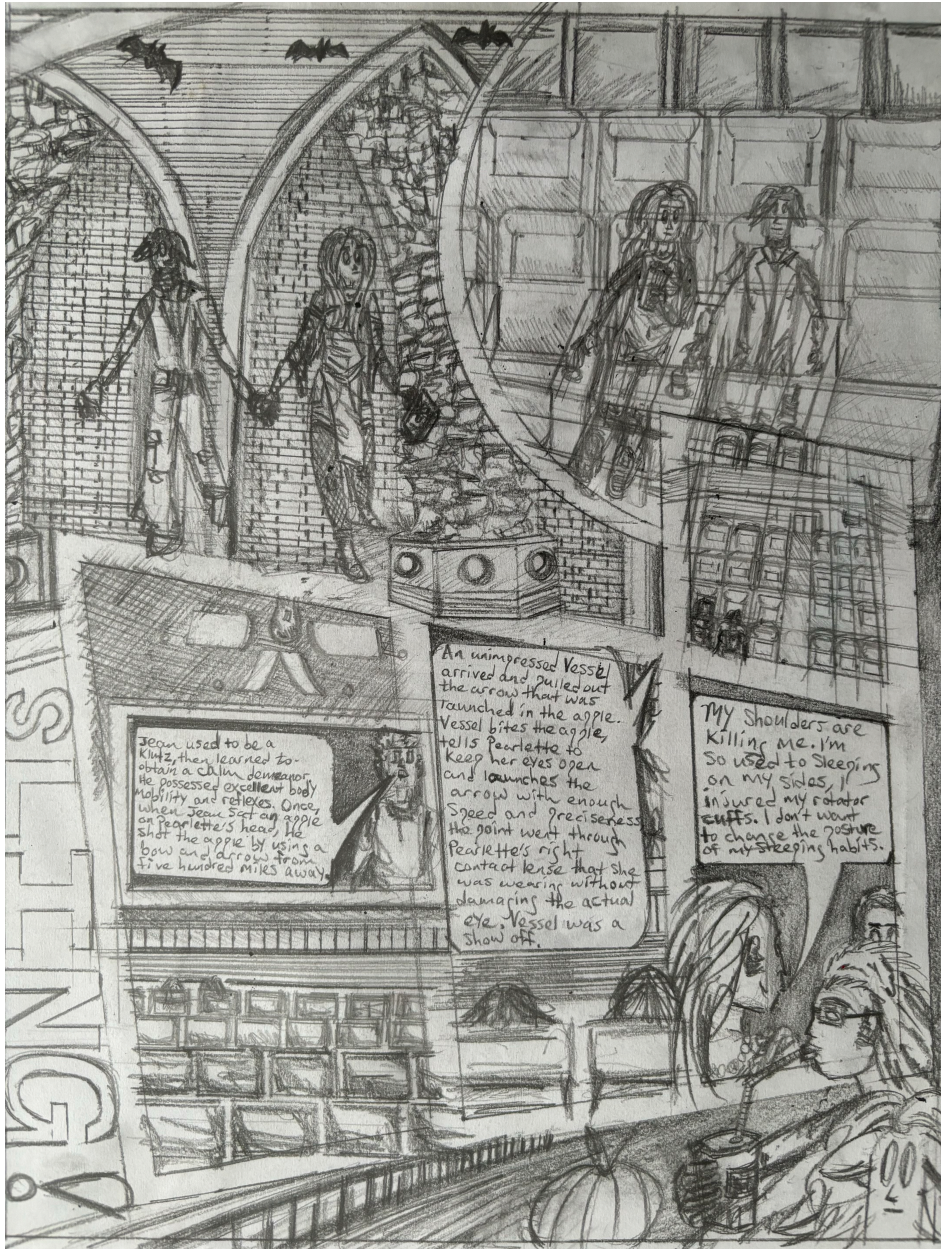 Jean used to be a
Klutz, then learned to
obtain a calm demeanor.
He possessed excellent body
mobility and reflexes. Once,
when Jean sat an apple
on Pearlette's head, he
shot the apple by using a
bow and arrow from
five hundred miles away.
An unimpressed Vessel
arrived and pulled out
the arrow that was
launched in the apple.
Vessel bites the apple,
tells Pearlette to
keep her eyes open
and launches the
arrow with enough
speed and preciseness
the point went through
Pearlette's right
contact lense that she
was wearing without
damaging the actual
eye. Vessel was a
show off.
My shoulders are
killing me. I'm
so used to sleeping
on my sides, I
injured my rotator
cuffs. I don't want
to change the posture
of my sleeping habits.